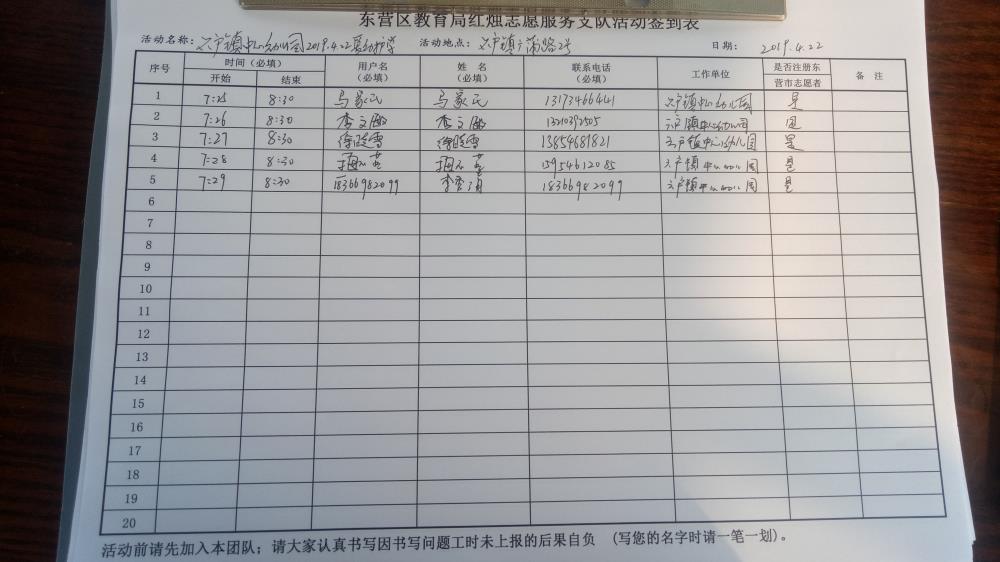 东营区教育局红烛志愿服务支队活动签到表
活动名称：六户镇中心幼儿园2019.4.22爱幼护学 活动地点：六户镇广蒲路2号 日期：2019.4.22
序号 时间（必填） 用户名（必填） 姓 名（必填） 联系电话（必填） 工作单位 是否注册东营市志愿者 备 注
开始 结束
1 7:25 8:30 马家民 马家民 13173466441 六户镇中心幼儿园 是
2 7:26 8:30 李文 李文 13210392505 六户镇中心幼儿园 是
3 7:27 8:30 徐晓雪 徐晓雪 13854681821 六户镇中心幼儿园 是
4 7:28 8:30 15954612085 六户镇中心幼儿园 是
5 7:29 8:30 18366982099 李 18366982099 六户镇中心幼儿园 是
6
7
8
9
10
11
12
13
14
15
16
17
18
19
20
活动前请先加入本团队；请大家认真书写因书写问题工时未上报的后果自负 （写您的名字时请一笔一划）。